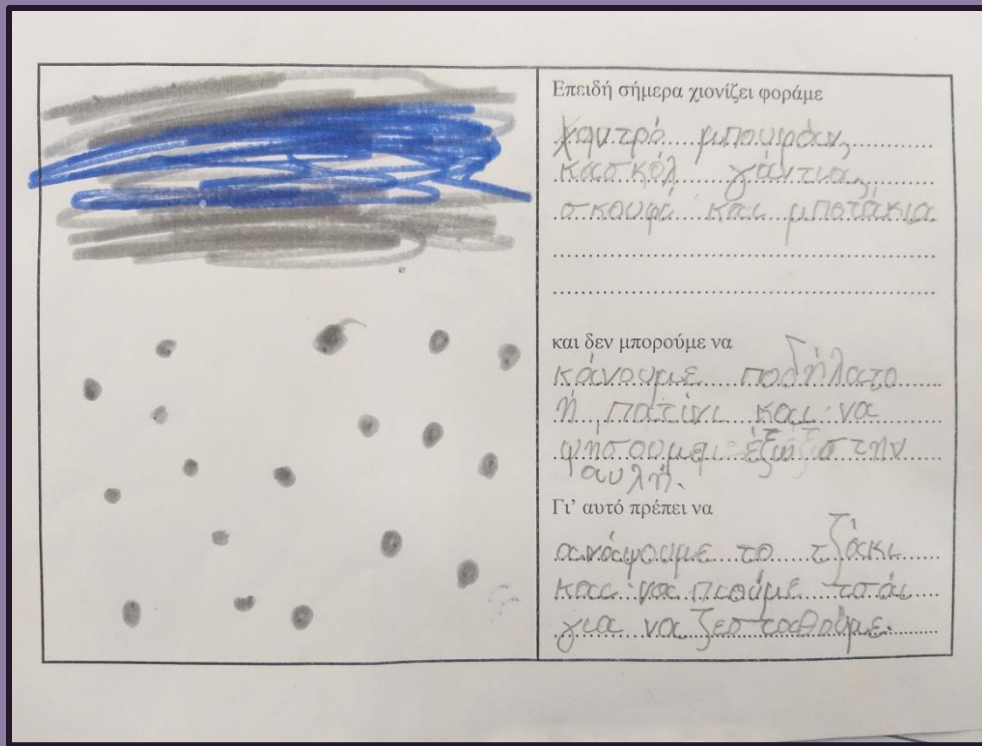 Επειδή σήμερα χιονίζει φοράμε
χοντρό μπουφάν,
κασκόλ γάντια,
σκουφί και μποτάκια
και δεν μπορούμε να
κάνουμε ποδήλατο
ή πατίνι και να
ψήσουμε έξω στην
αυλή.
Γι' αυτό πρέπει να
ανάψουμε το τζάκι
και να πιούμε τσάι
για να ζεσταθούμε.